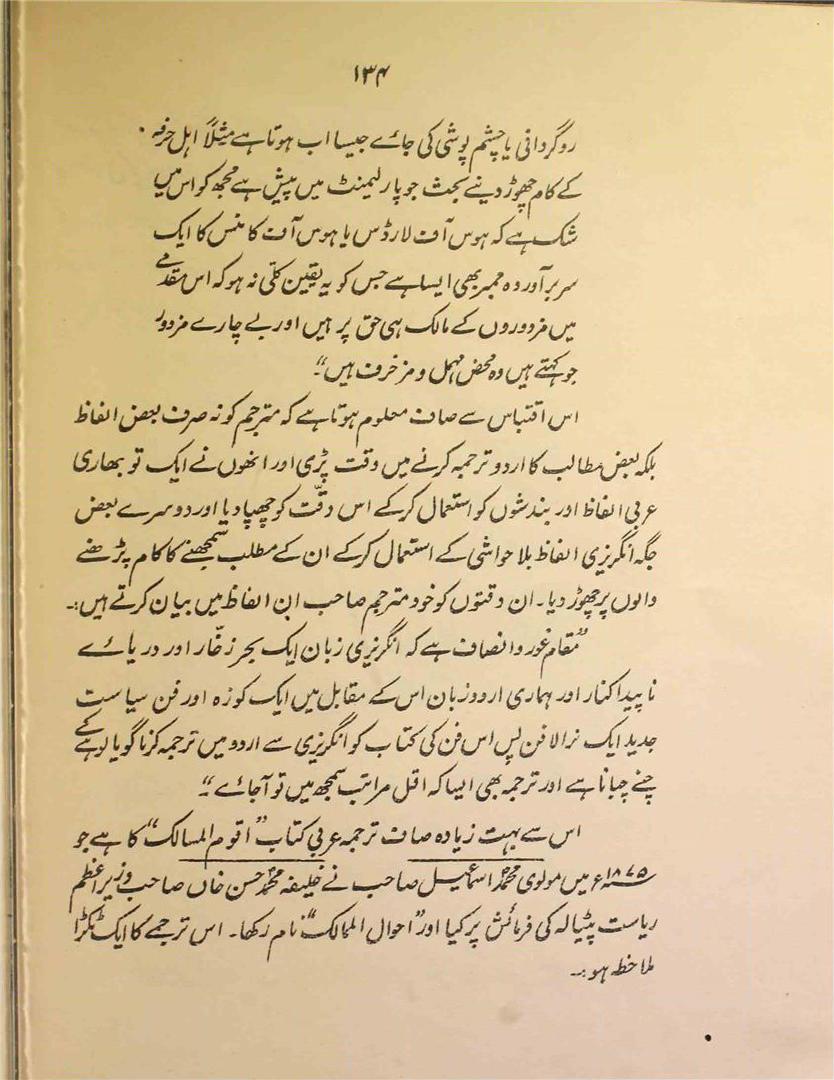 ۱۳۴
روگردانی یا چشم پوشی کی جائے جیسا اب ہوتا ہے مثلاً اہل حرفہ
کے کام چھوڑ دینے بحث جو پارلیمنٹ میں پیش ہے مجھ کو اس میں
شک ہے کہ ہوس آف لارڈس یا ہوس آف کامنس کا ایک
سربرآوردہ ممبر بھی ایسا ہے جس کو یہ یقین کلّی نہ ہو کہ اس مقدمے
میں مزدوروں کے مالک ہی حق پر ہیں اور بے چارے مزدور
جو کہتے ہیں وہ محض مہمل و مزخرف ہیں"۔
اس اقتباس سے صاف معلوم ہوتا ہے کہ مترجم کو نہ صرف بعض الفاظ
بلکہ بعض مطالب کا اردو ترجمہ کرنے میں دقت پڑی اور انھوں نے ایک تو بھاری
عربی الفاظ اور بندشوں کو استعمال کرکے اس دقّت کو چھپا دیا اور دوسرے بعض
جگہ انگریزی الفاظ بلا حواشی کے استعمال کرکے ان کے مطلب سمجھنے کا کام پڑھنے
والوں پر چھوڑ دیا۔ ان دقتوں کو خود مترجم صاحب ان الفاظ میں بیان کرتے ہیں:۔
"مقام غور و انصاف ہے کہ انگریزی زبان ایک بحر زخّار اور دریائے
ناپیدا کنار اور ہماری اردو زبان اس کے مقابل میں ایک کوزہ اور فن سیاست
جدید ایک نرالا فن پس اس فن کی کتاب کو انگریزی سے اردو میں ترجمہ کرنا گویا لوہے کے
چنے چبانا ہے اور ترجمہ بھی ایسا کہ اقل مراتب سمجھ میں تو آجائے"۔
اس سے بہت زیادہ صاف ترجمہ عربی کتاب "اقوم المسالک" کا ہے جو
۱۸۷۵ء میں مولوی محمد اسماعیل صاحب نے خلیفہ محمد حسن خاں صاحب وزیر اعظم
ریاست پٹیالہ کی فرمائش پر کیا اور "احوال الممالک" نام رکھا۔ اس ترجمے کا ایک ٹکڑا
ملاحظہ ہو:۔